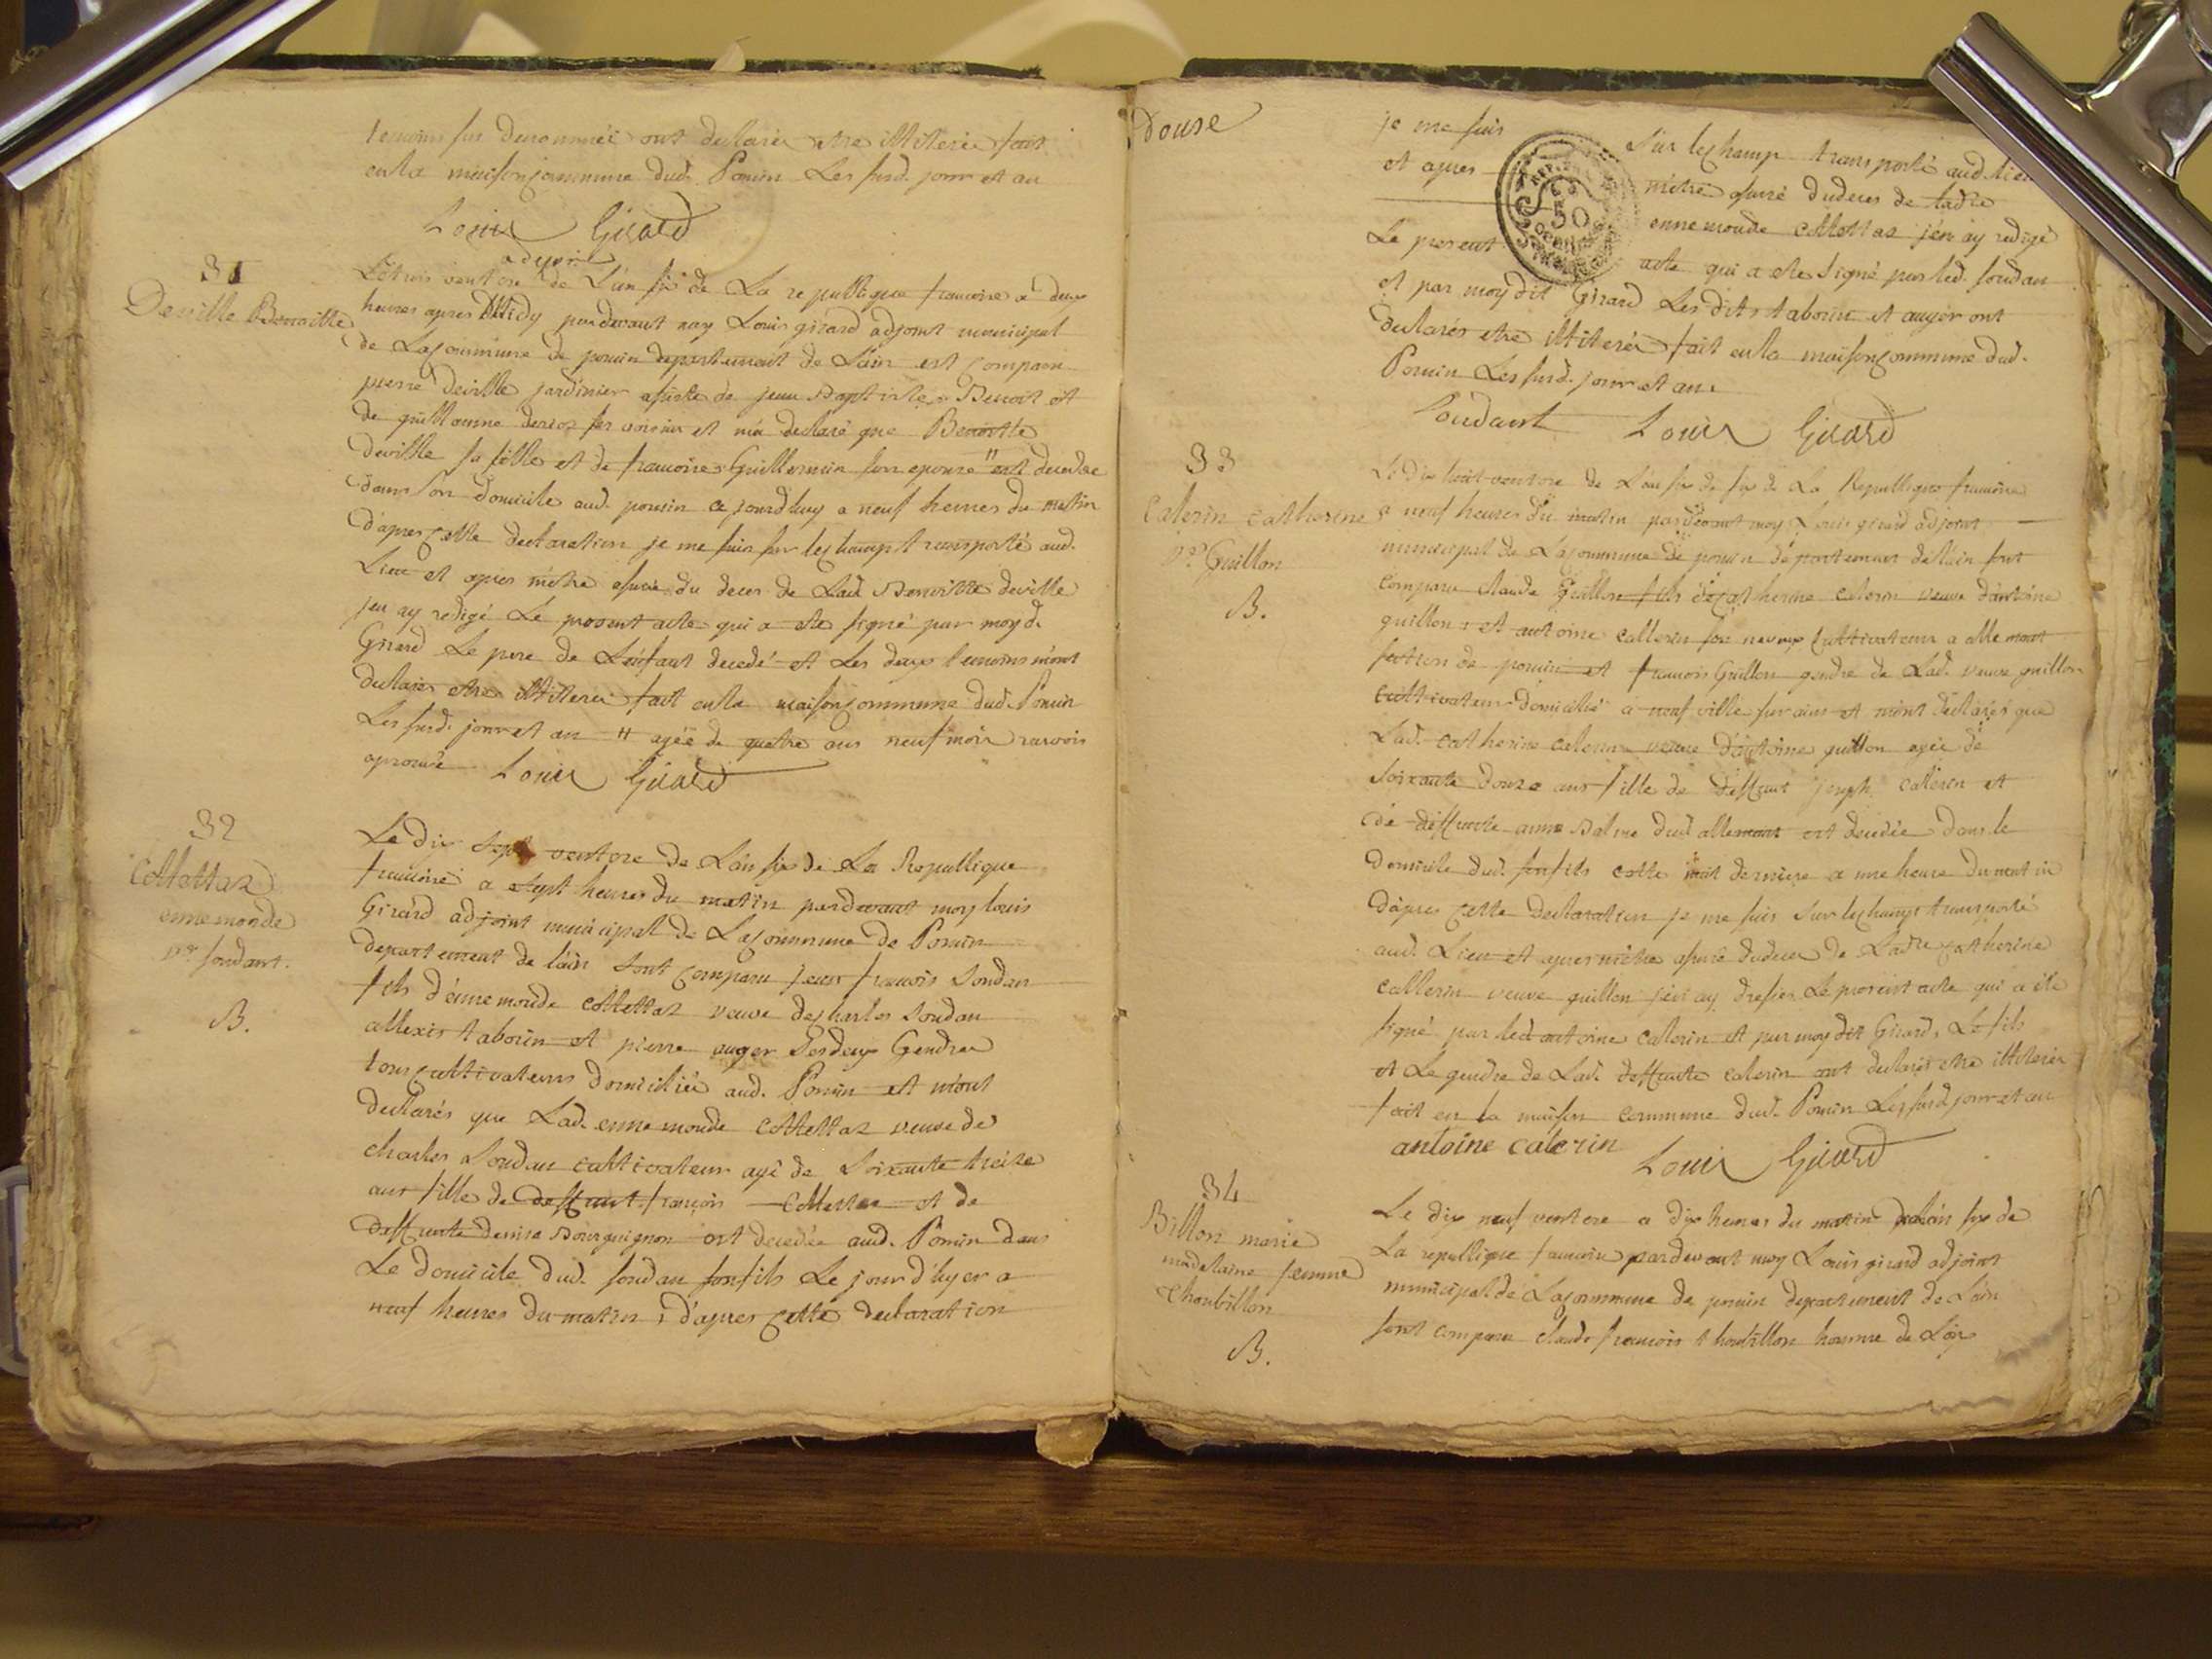 temoins sus denommés ont declarés etre illiterés fait
en la maison commune dud. Poncin Les susd. jour et an
Louis Girard
adjoint
31
Deville Benoitte
Le trois ventose de L'an six de La republique francoise a deux
heures apres Midy pardevant moy Louis girard adjoint municipal
de La commune de poncin departement de L'ain est comparu
pierre deville jardinier assisté de jean Baptiste Benoit et
de guillaume ses voisins et m'a declaré que Benoitte
deville sa fille et de francoise Guillermin son epouse " est decedée
dans son domicile aud. poncin ce jourd'huy a neuf heures du matin
d'apres cette declaration je me suis sur le champ transporté aud.
Lieu et apres m'etre assuré du deces de Lad. Benoitte deville
j'en ay redigé Le present acte qui a eté signé par moy d.
Girard Le pere de L'enfant decedé et Les deux temoins m'ont
declarés etre illiterés fait en la maison commune dud. Poncin
Les susd. jour et an " agée de quatre ans neuf mois renvois
aprouvé Louis Girard
32
Collettaz
ennemonde
vve soudant.
B.
Le dix sept ventose de L'an six de La Republique
francoise a sept heures du matin pardevant moy louis
Girard adjoint municipal de La commune de Poncin
departement de l'ain sont comparu jean francois Soudan
fils d'ennemonde Collettaz veuve de charles Soudan
allexis taborin et pierre auger Ses deux Gendres
tous cultivateurs domiciliés aud. Poncin et m'ont
declarés que Lad. ennemonde Collettaz veuve de
charles Soudan cultivateur agé de Soixante treize
ans fille de deffunt francois Collettaz et de
deffunte denise Bourguignon est decedée aud. Poncin dans
Le domicile dud. soudan son fils Le jour d'hyer a
neuf heures du matin, d'apres cette declaration
Douse
je me suis Sur le champ transporté aud. lieu
et apres m'etre assuré du deces de ladte
ennemonde Collettaz j'en ay redigé
Le present acte qui a eté signé par led. soudan
et par moy dit Girard Les dits taborin et auger ont
declarés etre illiterés fait en la maison commune dud.
Poncin Les susd. jour et an.
50
Soudant Louis Girard
33
Calerin catherine
vve Guillon
B.
Le dix huit ventose de L'an six de six de La Republique francoise
a neuf heures du matin pardevant moy Louis girard adjoint
municipal de La commune de poncin departement de l'ain sont
comparu claude Guillon fils de catherine calerin veuve d'antoine
guillon, et antoine callerin son neveux Cultivateurs a allemont
section de poncin et francois Guillon gendre de Lad. veuve guillon
cultivateur domicilié a neufville sur ains et m'ont declarés que
Lad. catherine calerin veuve d'antoine guillon agée de
soixante douze ans fille de deffunt joseph calerin et
de deffunte anne dud. allemont est decedée dans le
domicile dud. son fils cette nuit derniere a une heure du matin
d'apres cette declaration je me suis Sur le champ transporté
aud. Lieu et apres m'etre assuré du deces de Ladte catherine
callerin veuve guillon j'en ay dresser Le present acte qui a eté
signé par led. antoine calerin et par moy dit Girard, Le fils
et Le gendre de Lad. deffunte calerin ont declarés etre illiterés
fait en la maison commune dud. Poncin Les susd. jour et an
antoine calerin Louis Girard
34
Billon marie
madelaine femme
thoubillon
B.
Le dix neuf ventose a dix heures du matin de L'an six de
La republique francoise pardevant moy Louis girard adjoint
municipal de La commune de poncin departement de L'ain
sont comparu claude francois thoubillon homme de Loix